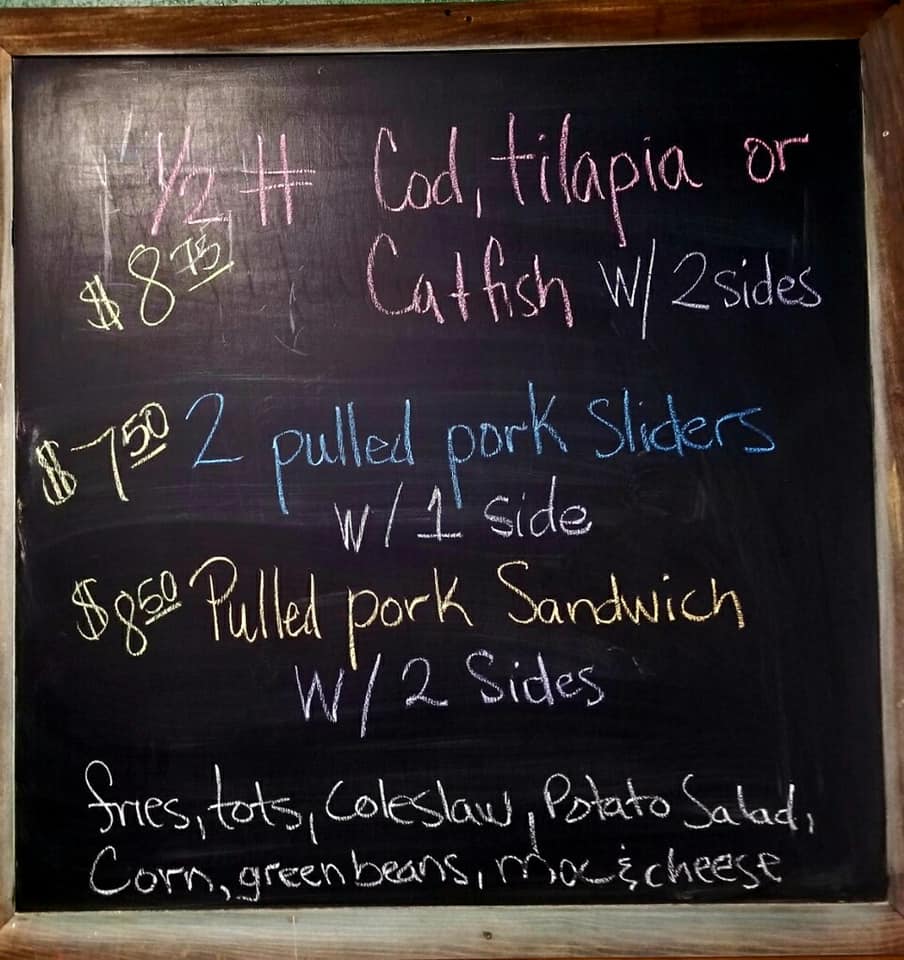 1/2 # Cod, tilapia or
$8 75 Catfish w/ 2 sides
$7 50 2 pulled pork Sliders
w/ 1 side
$8 50 Pulled pork Sandwich
W/ 2 Sides
fries, tots, Coleslaw, Potato Salad,
Corn, green beans, mac & cheese